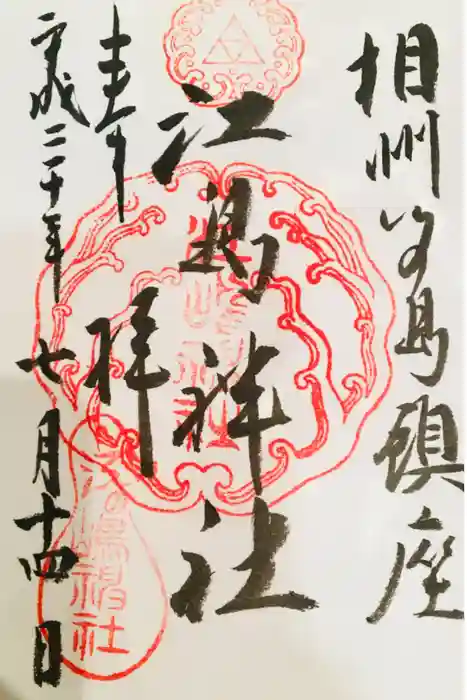 相州江島鎮座
江島神社
奉拝
平成三十年七月十四日
江嶋神社